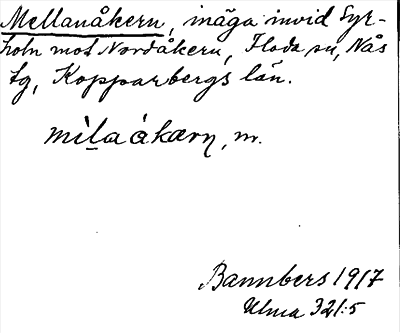 Mellanåkern, inäga invid Syr-
holn mot Nordåkern, Floda sn, Nås
tg, Kopparbergs län.
mìlaákærn, m.
Bannbers 1917
Ulma 321:5